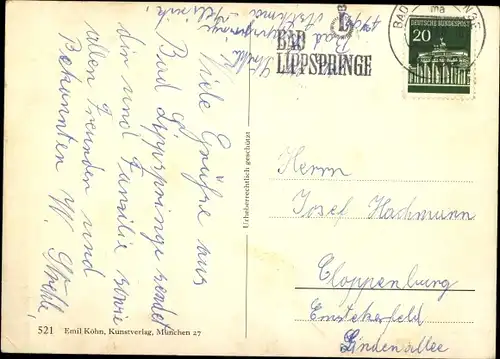 Viele Grüße aus
Bad Lippspringe sendet
dir und Familie sowie
allen Freunden und
Bekannten W. Ströhle,
BAD
LIPPSPRINGE
DEUTSCHE BUNDESPOST
20
Urheberrechtlich geschützt
Herrn
Josef Hachmann
Cloppenburg
Emstekerfeld
Lindenallee
521 Emil Köhn, Kunstverlag, München 27